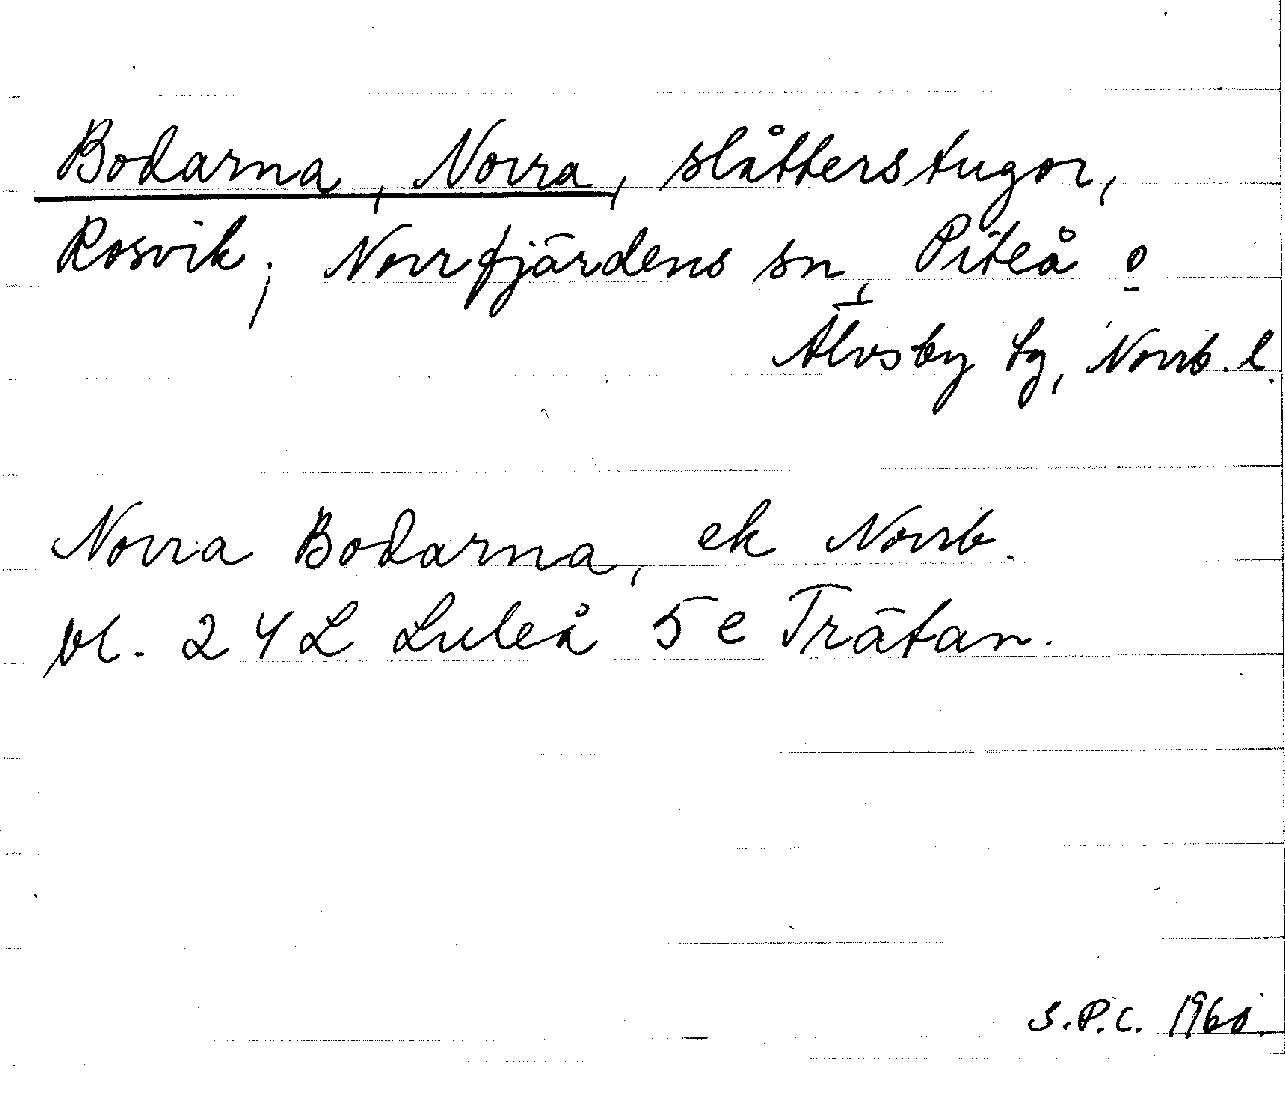 Bodarna, Norra, slåtterstugor,
Rosvik, Norrfjärdens sn, Piteå o
Älvsby tg, Norrb. l.
Norra Bodarna, ek Norrb.
bl. 24L Luleå 5 e Trätan.
S.P.C. 1960.